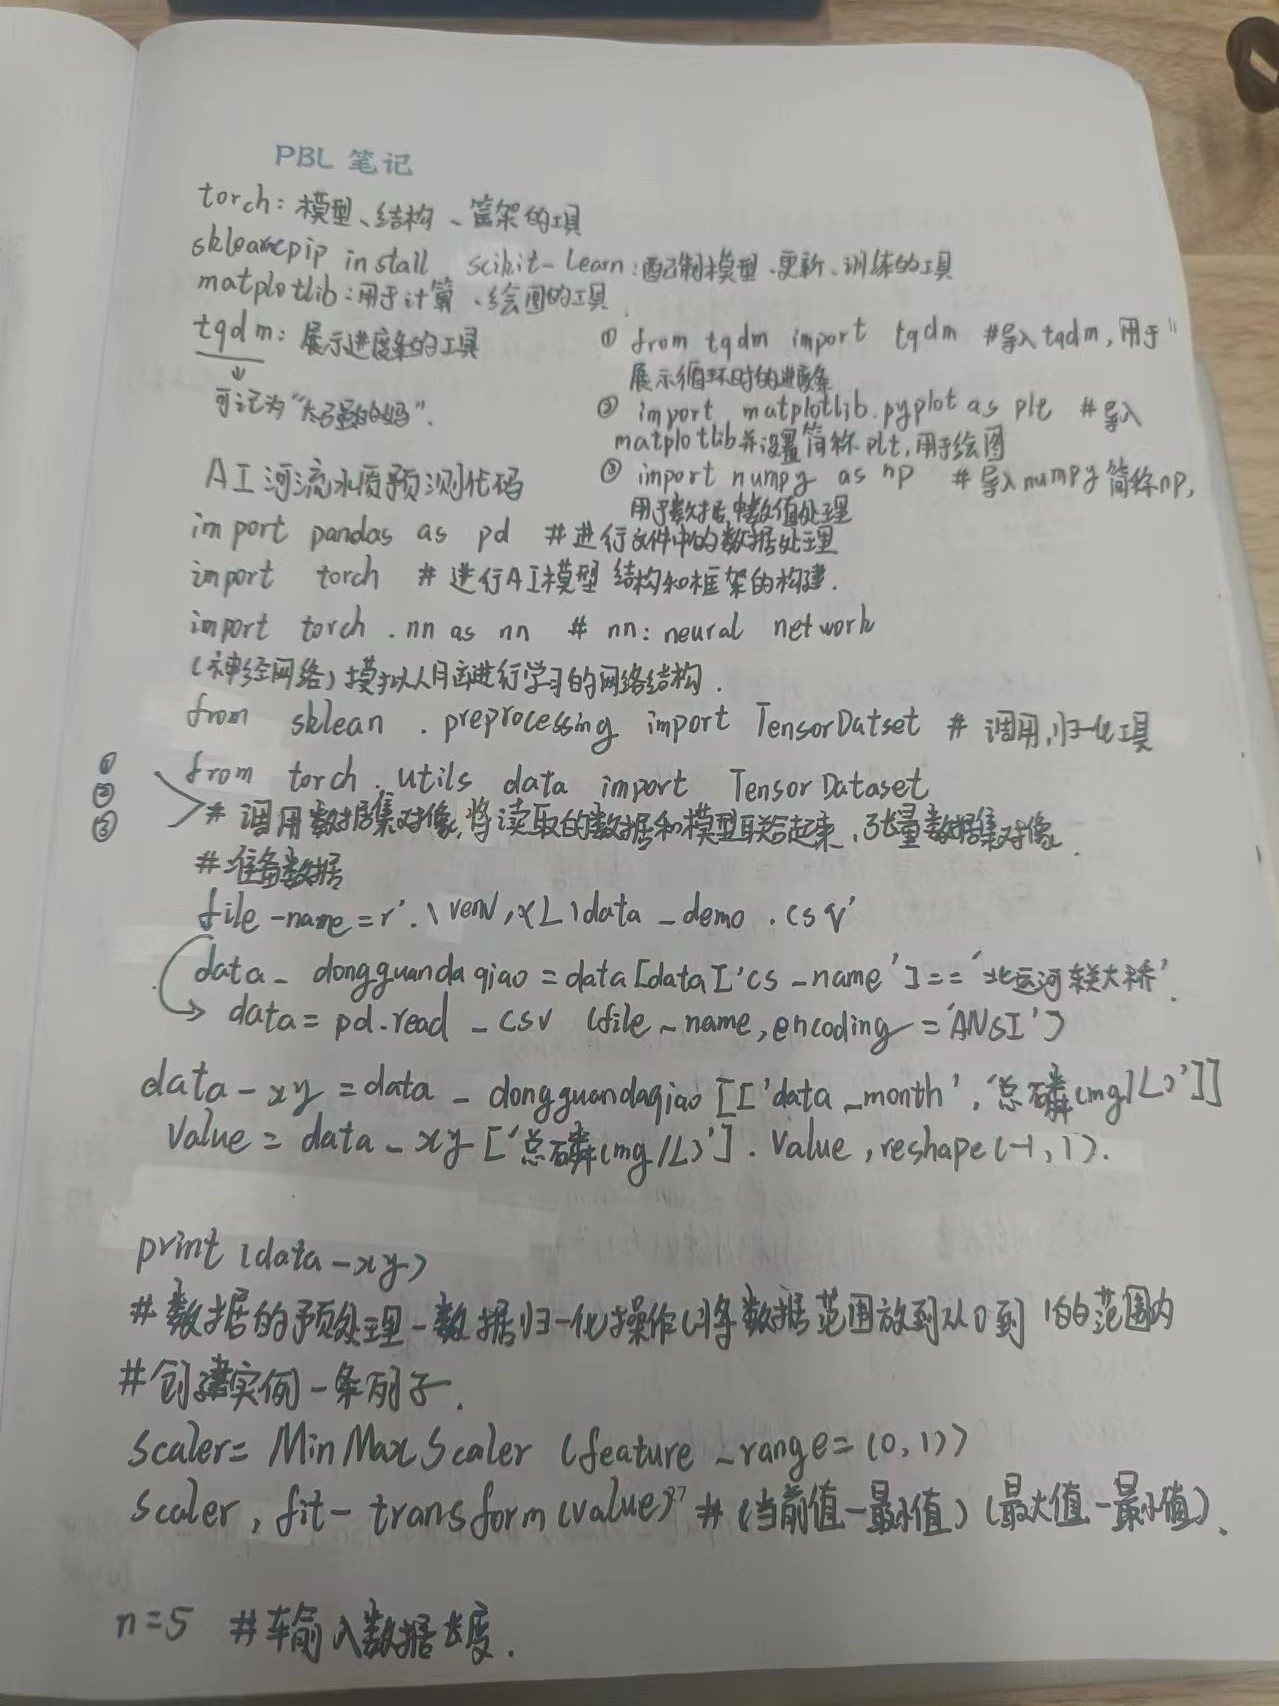 PBL 笔记
torch: 模型、结构、筐架的工具
sklearn pip install scikit-learn: 配制模型、更新、训练的工具
matplotlib: 用于计算、绘图的工具
tqdm: 展示进度条的工具
可记为“大弓 的妈”.
① from tqdm import tqdm #导入tqdm,用于
展示循环时的进度条
② import matplotlib.pyplot as plt #导入
matplotlib并设置简称plt,用于绘图
③ import numpy as np #导入numpy简称np,
用于数据中数值处理
AI河流水质预测代码
import pandas as pd #进行文件中的数据处理
import torch #进行AI模型结构和框架的构建.
import torch .nn as nn # nn: neural network
(神经网络)模拟人脑进行学习的网络结构.
from sklean .preprocessing import TensorDatset #调用,归一化工具
①
②
③
from torch .utils data import TensorDataset
#调用数据集对像,将读取的数据和模型联合起来,张量数据集对像.
#准备数据
file-name=r'.\venv,xL\data_demo .csv'
data_dongguandaqiao=data[data['cs_name']=='北运河东关大桥'.
data=pd.read_csv (file_name,encoding='ANSI')
data-xy=data_dongguandaqiao[['data_month','总磷(mg/L)']]
Value=data_xy['总磷(mg/L)'].Value,reshape(-1,1).
print(data-xy)
#数据的预处理-数据归一化操作(将数据范围放到从0到1的范围内
#创建实例一条列子.
Scaler=MinMaxScaler (feature_range=(0,1))
Scaler, fit-transform(value) #(当前值-最小值)(最大值-最小值).
n=5 #输入数据长度.